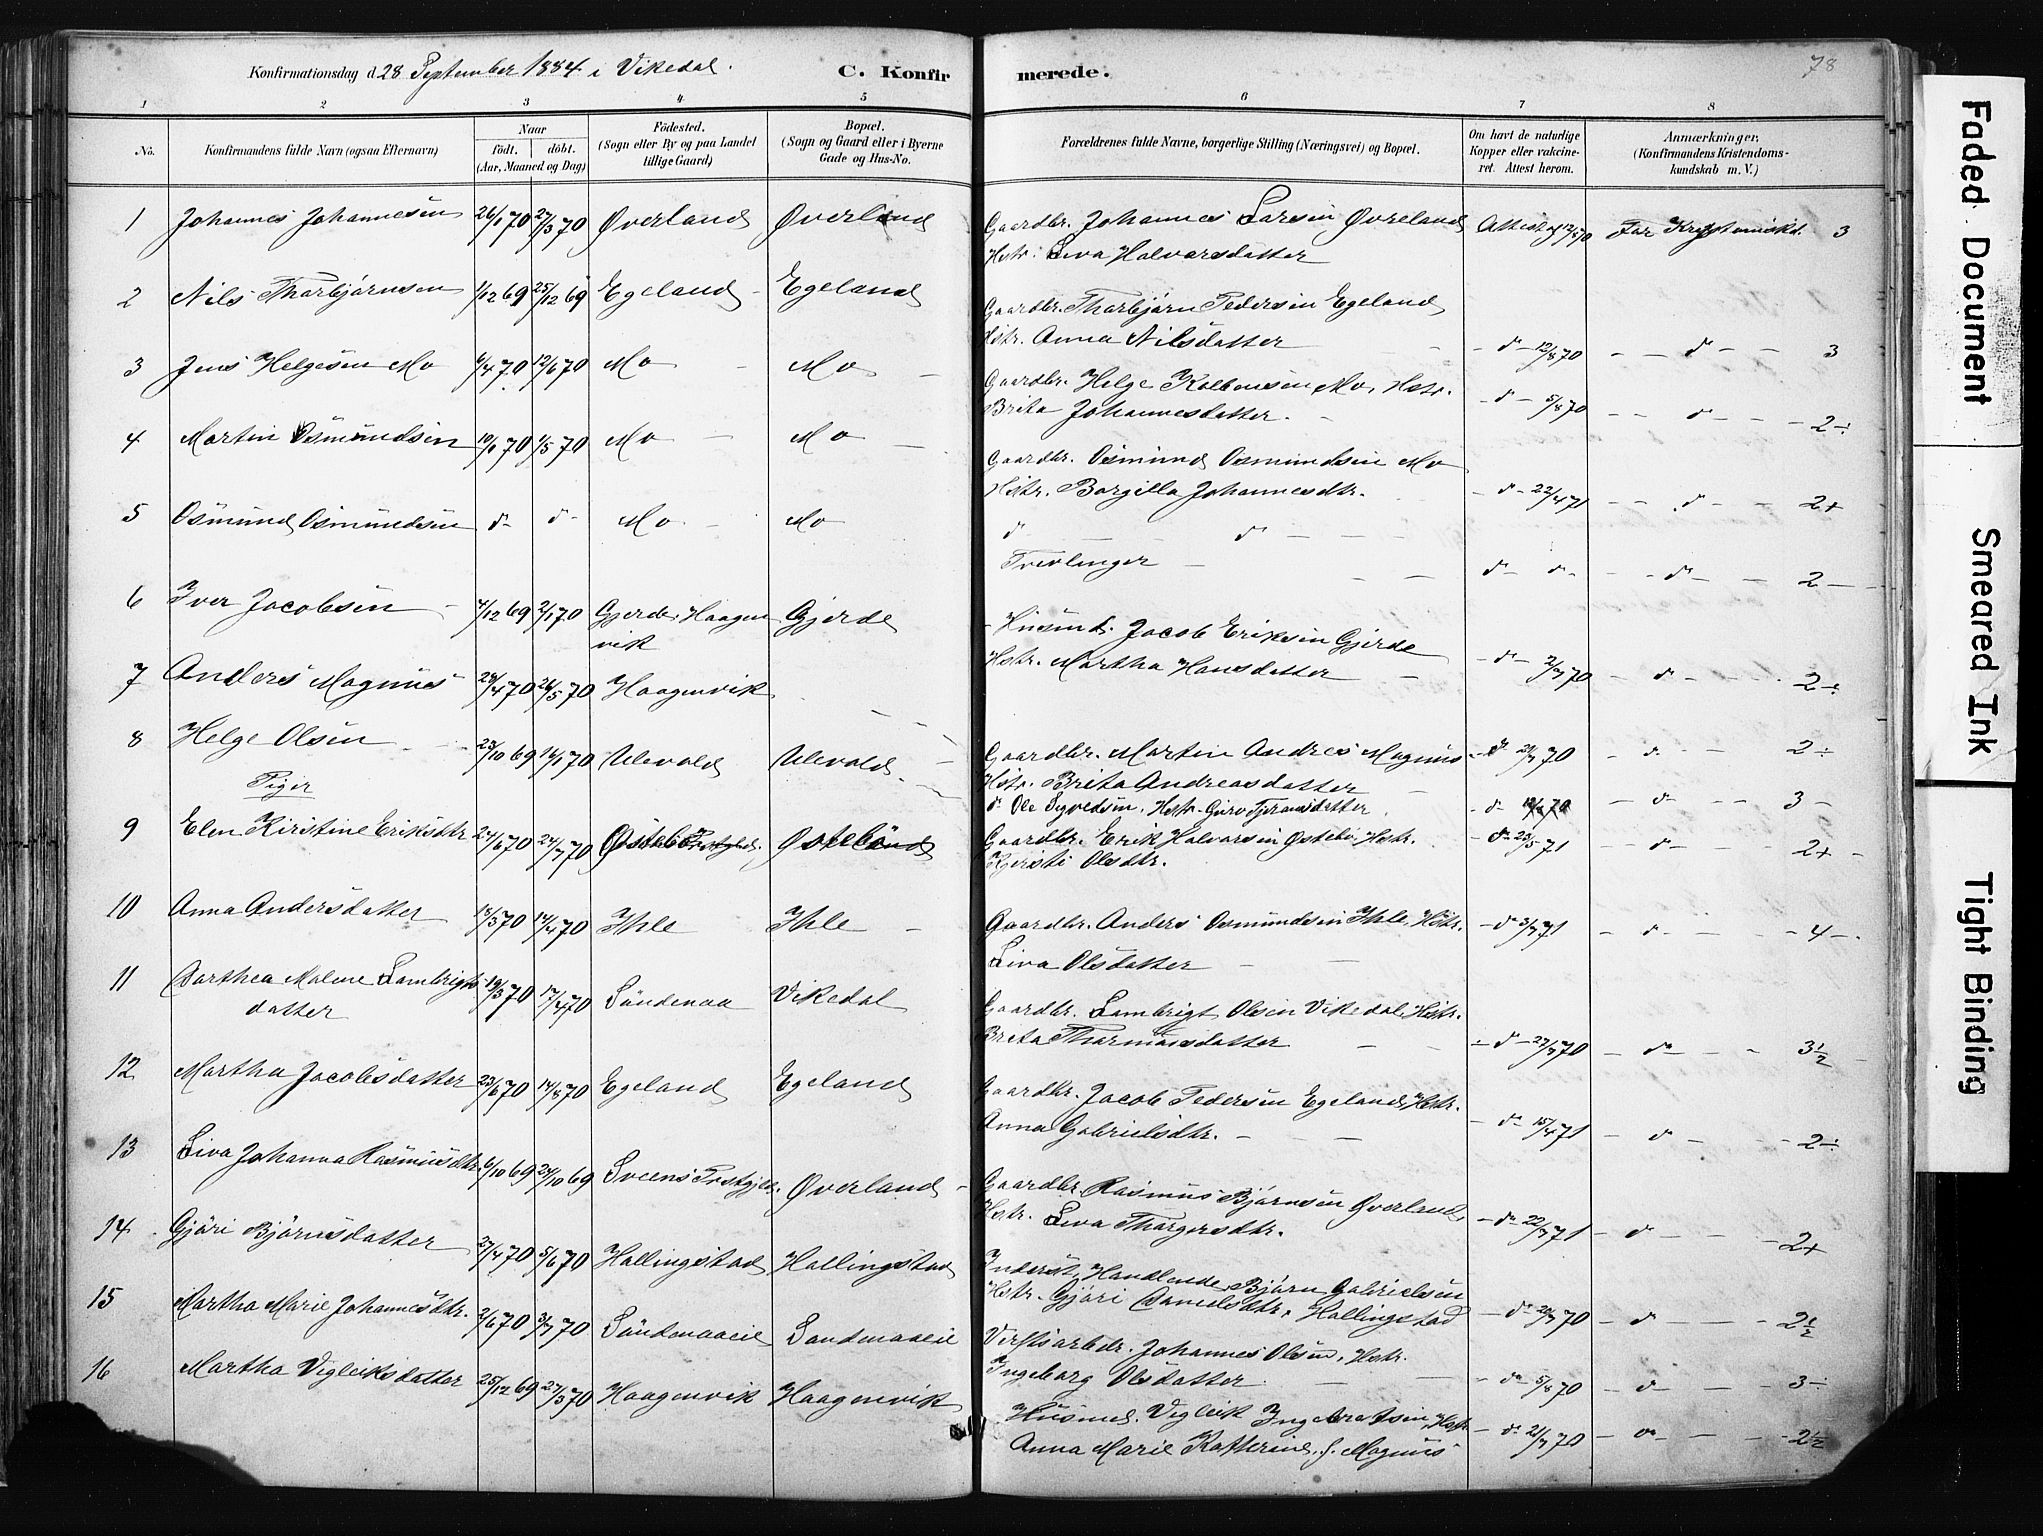 Konfirmationsdag d. 28 September 1884 i Vikedal.
C. Konfirmerede.
78
1 2 3 4 5 6 7 8
No.
Konfirmandens fulde Navn (ogsaa Efternavn)
Naar
født. døbt.
(Aar, Maaned og Dag)
Fødested.
(Sogn eller By og paa Landet
tillige Gaard)
Bopæl.
(Sogn og Gaard eller i Byerne
Gade og Hus-No.
Forældrenes fulde Navne, borgerlige Stilling (Næringsvei) og Bopæl.
Om havt de naturlige
Kopper eller vakcine-
ret. Attest herom.
Anmærkninger,
(Konfirmandens Kristendoms-
kundskab m. V.)
1 Johannes Johannesen 26/1 70 27/3 70 Øverland Øverland
Gaardbr. Johannes Larsen Øvreland Attest af 12/8 70 For Kristendomskd. 3
Hstr. Siva Halvorsdatter
2 Nils Thorbjørnsen 1/12 69 25/12 69 Egeland - Egeland
Gaardbr. Thorbjørn Pedersen Egeland
Hstr. Anna Nilsdatter - d - 12/8 70 - - d - - 3
3 Jens Helgesen Mo 6/4 70 12/6 70 Mo - Mo -
Gaardbr. Helge Kolbensen Mo, Hstr.
Brita Johannesdatter. - - d - 5/8 70 - - d - - 2÷
4 Martin Osmundsen 10/1 70 1/5 70 Mo - Mo -
Gaardbr. Osmund Osmundsen Mo
Hstr. Borgilla Johannesdtr. - d - 22/4 71 - - d - - 2+
5 Osmund Osmundsen d- d- Mo - Mo
d d - - -
Tvillinger - - - d- d- - - d- - 2 -
6 Iver Jacobsen - 4/12 69 2/1 70 Gjerde, Haagen Gjerde
vik
- Husmd. Jacob Eriksen Gjerde
Hstr. Martha Hansdatter - - d - 2/7 70 - d - 2÷
7 Anders Magnus 24/4 70 26/5 70 Haagenvik
Gaardbr. Martin Andres Magnus - d 21/7 70 - d - - 2÷
Hstr. Brita Andreasdatter
8 Helge Olsen 23/10 69 16/1 70 Ulevold Ulevold -
d. Ole Syvedsen, Hstr. Guro - d - 12/8 70 - d - - 3 -
Piger
9 Elen Kirstine Eriksdtr 24/6 70 24/7 70 Østebø Østebø
Gaardbr. Erik Halvorsen Østebø, Hstr. - d - 23/5 71 - d - - 2+ -
Kjersti Olsdtr.
10 Anna Andersdatter 18/3 70 14/4 70 Ihle Ihle -
Gaardbr. Anders Osmundsen Ihle, Hstr. - d 3/7 71 - d - - 4 -
Siva Olsdatter - -
11 Dorthea Malene Lambrigts- 19/3 70 17/4 70 Søndenaa Vikedal
datter
Gaardbr. Lambrigt Olsen Vikedal, Hstr.
Brita Thormodsdatter - - - d - 27/7 70 - d - - 3½ -
12 Martha Jacobsdatter 23/6 70 14/8 70 Egeland Egeland
Gaardbr. Jacob Pedersen Egeland, Hstr.
Anna Gabrielsdtr. - - - d - 15/4 71 - d - 2÷
13 Siva Johanna Rasmusdtr. 6/10 69 24/10 69 Sveens Prstgjeld. Øverland -
Gaardbr. Rasmus Bjørnsen Øverland,
Hstr. Siva Thorgersdtr. - d - 22/7 71 - d - - - 2+
14 Gjøri Bjørnsdatter 27/4 70 5/6 70 Hallingstad Hallingstad
Inderst, Handlende Bjørn Gabrielsen
Hstr. Gjøri Danielsdtr. Hallingstad - d - 20/7 70 - d - - 2½
15 Martha Marie Johannesdtr. 2/6 70 3/7 70 Søndenaaeie Sandenaaeie
Verftsarbdr. Johannes Olsen, Hstr.
Ingeborg Olsdatter - - - d - 5/8 70 - d - - 3÷
16 Martha Vigleiksdatter 25/12 69 27/3 70 Haagenvik Haagenvik
Husmd. Vigleik Ingebretsen, Hstr. - d - 21/7 70 - d - - 2½
Anna Marie Katherine f. Magnus
Faded Document
Smeared Ink
Tight Binding